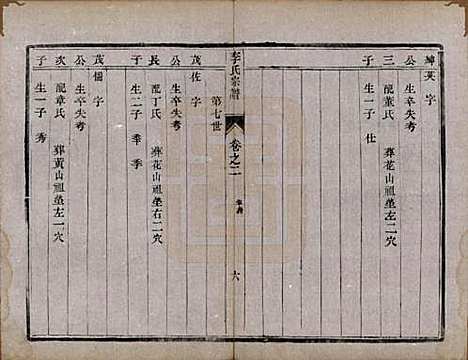 紳英 字
公 生卒失考
三 配董氏 葬花山祖塋左二穴
子 生一子 仕
李氏宗譜
卷之二
六
第七世
茂佐 字
公 生卒失考
長 配丁氏 葬花山祖塋右二穴
子 生二子 奉 季
茂儒 字
公 生卒失考
次 配章氏 葬黃山祖塋左一穴
子 生一子 秀